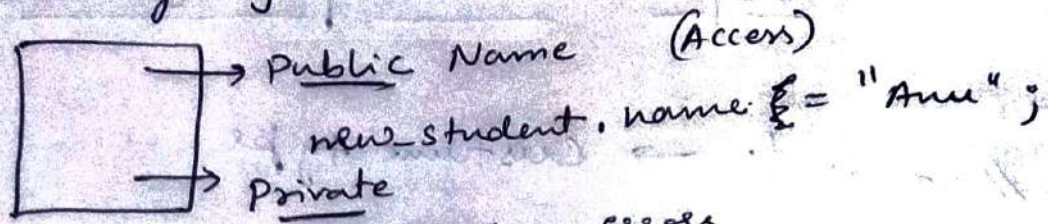 Public Name (Access)
new_student.name = "Anu";
Private